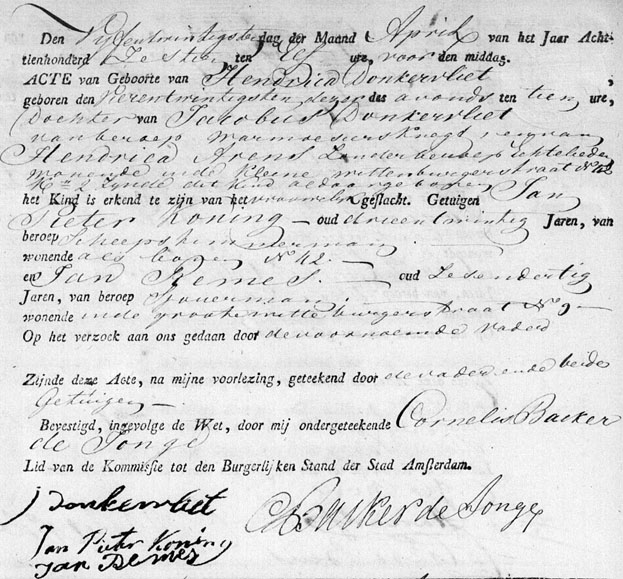 Den Vyfentwintigsten dag der Maand April van het Jaar Acht-
tienhonderd Zestien ten Elf ure, voor den middag.
ACTE van Geboorte van Hendrica Donkervliet,
geboren den Vierentwintigsten dezer des avonds ten tien ure,
Dochter van Jacobus Donkervliet
van beroep warmoesiersknegt en van
Hendrica Arens Zonder beroep Echtelieden
wonende in de Kleene wittenburgerstraat No 42
Kn 2 zynde dit kind aldaar geboren
het Kind is erkend te zijn van het vrouwelyk geslacht. Getuigen Jan
Pieter Koning — oud drieentwintig Jaren, van
beroep Scheepstimmerman
wonende als boven No 42. —
en Jan Remes. — oud Zesendertig
Jaren, van beroep
wonende in de groote wittenburgerstraat No 9 —
Op het verzoek aan ons gedaan door de voornoemde vader
Zijnde deze Acte, na mijne voorlezing, geteekend door de vader ende beide
Getuigen —
Bevestigd, ingevolge de Wet, door mij ondergeteekende Cornelis Backer
de Jonge
Lid van de Kommissie tot den Burgerlijken Stand der Stad Amsterdam.
J Donkervliet
C Backer de Jonge
Jan Pieter Koning
Jan Remes